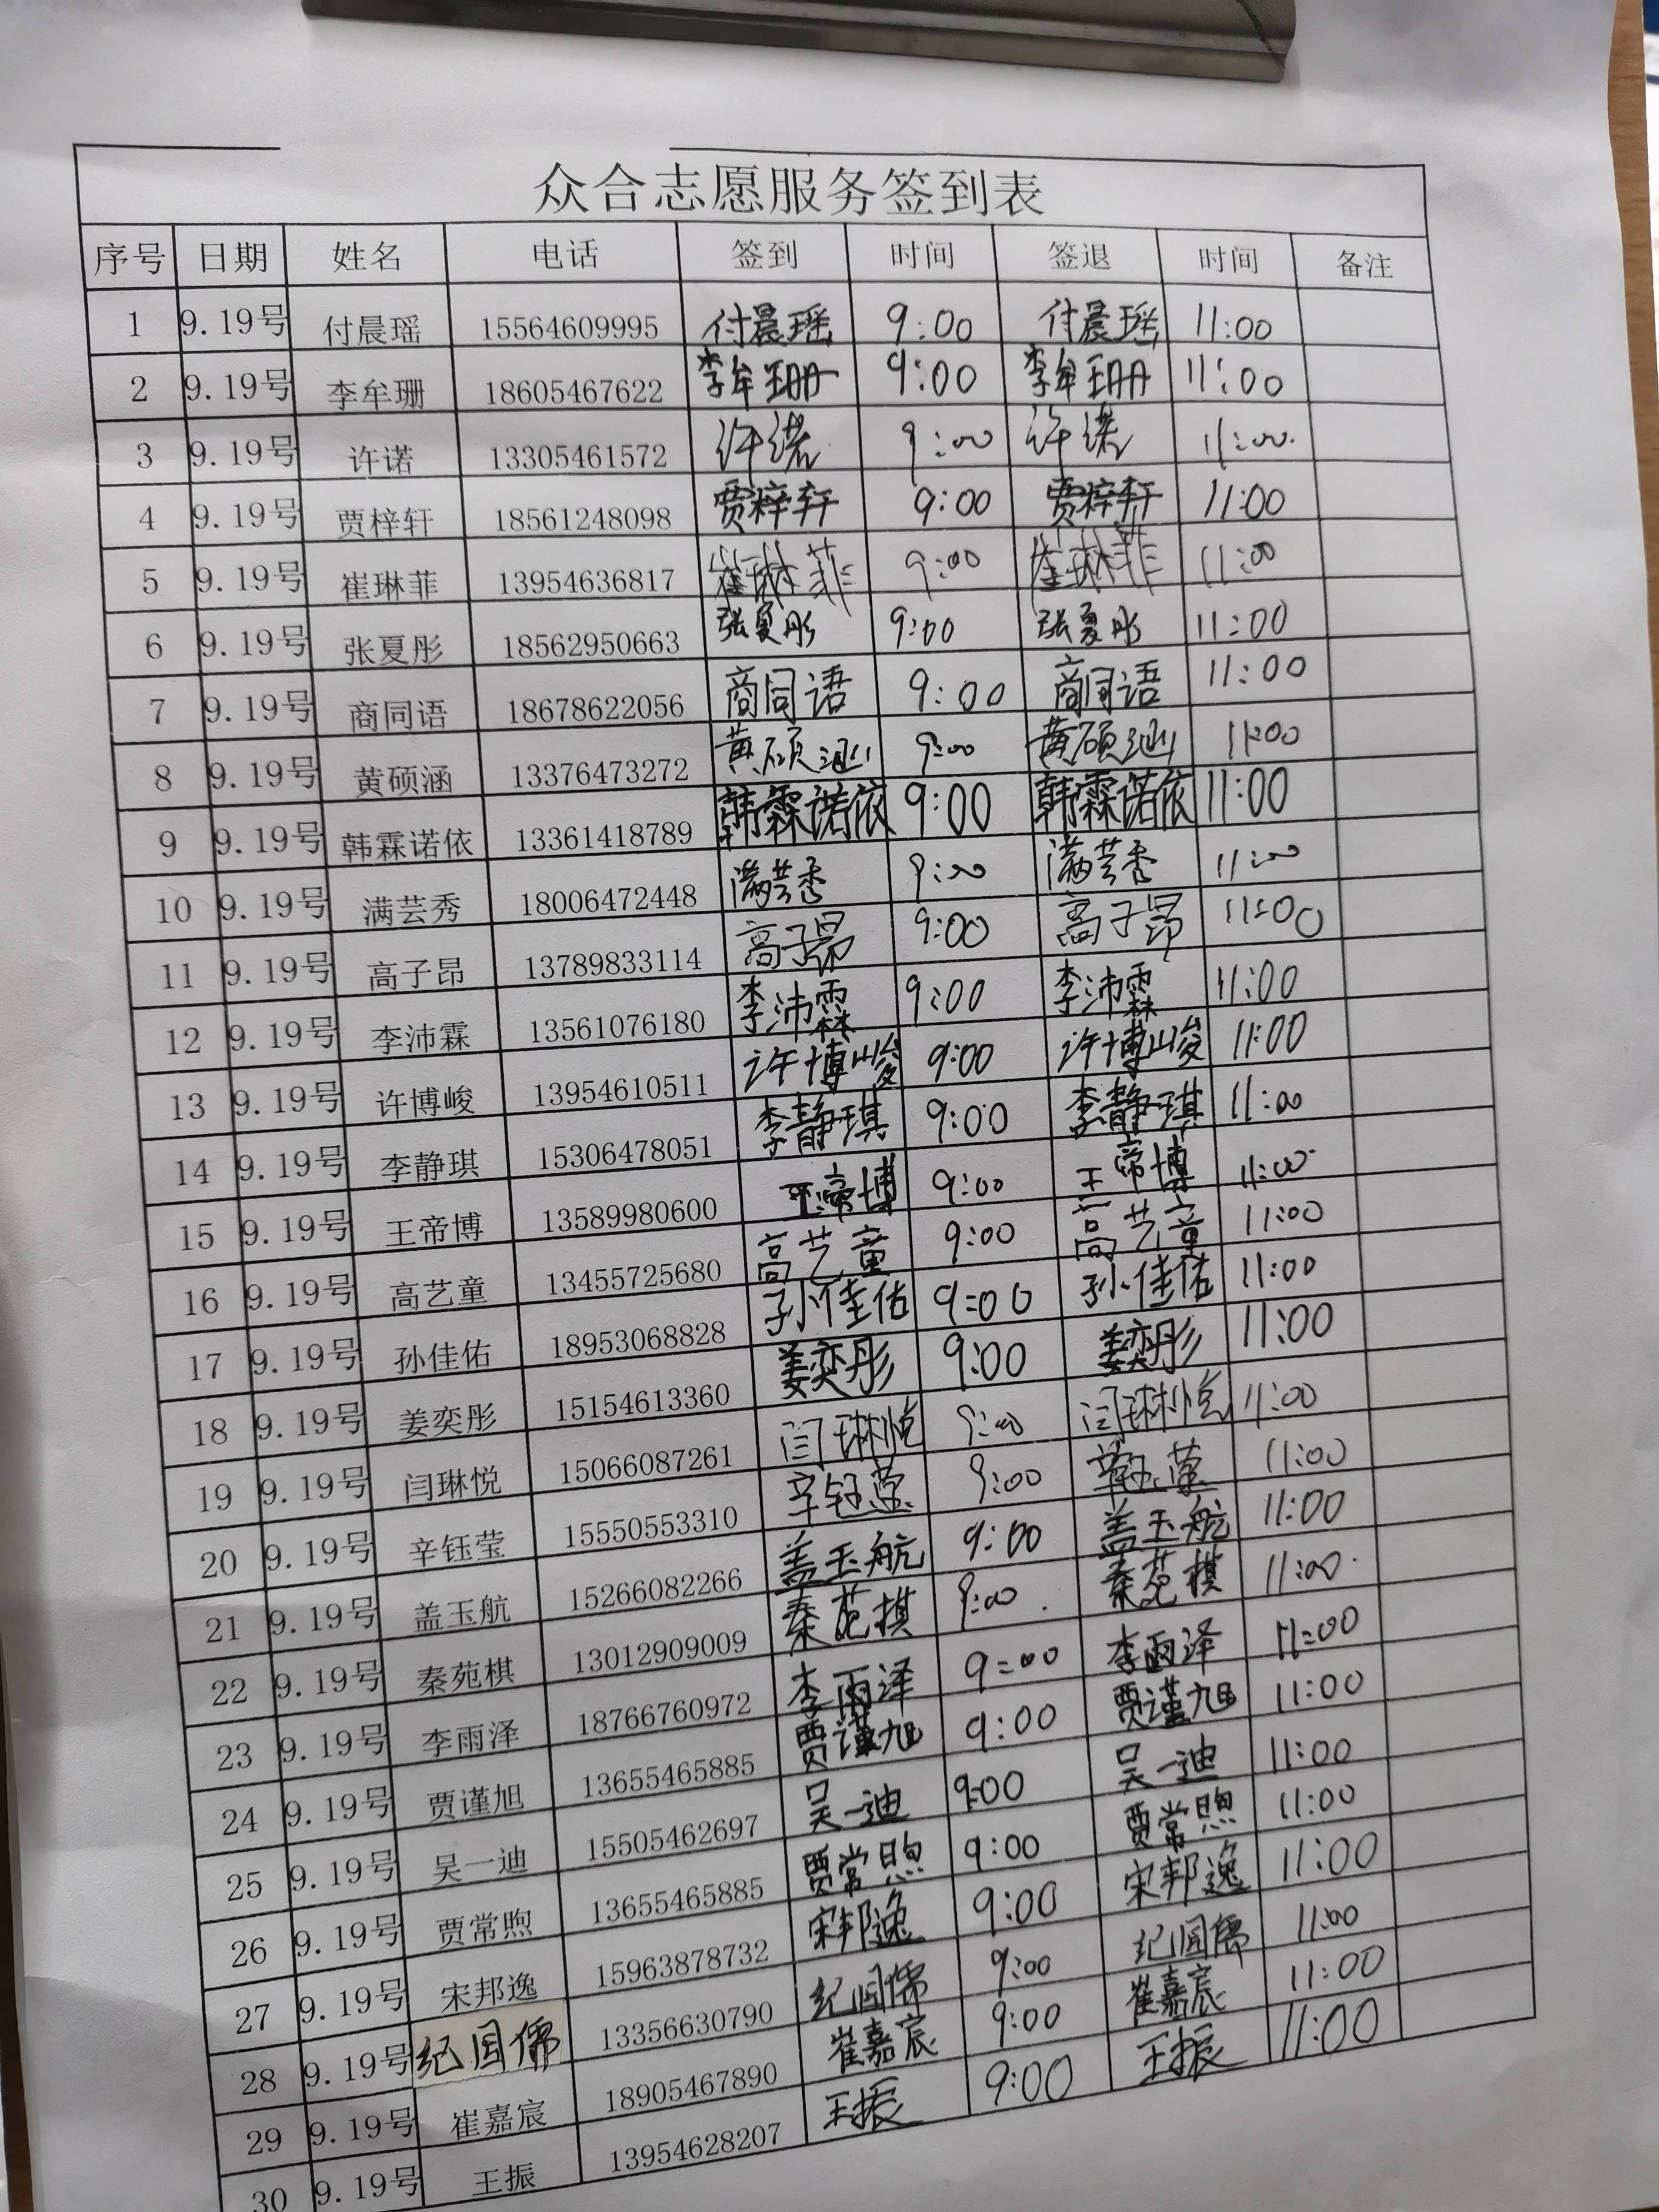 众合志愿服务签到表
序号 日期 姓名 电话 签到 时间 签退 时间 备注
1 9.19号 付晨瑶 15564609995 付晨瑶 9:00 付晨瑶 11:00
2 9.19号 李牟珊 18605467622 李牟珊 9:00 李牟珊 11:00
3 9.19号 许诺 13305461572 许诺 9:00 许诺 11:00
4 9.19号 贾梓轩 18561248098 贾梓轩 9:00 贾梓轩 11:00
5 9.19号 崔琳菲 13954636817 崔琳菲 9:00 崔琳菲 11:00
6 9.19号 张夏彤 18562950663 张夏彤 9:00 张夏彤 11:00
7 9.19号 商同语 18678622056 商同语 9:00 商同语 11:00
8 9.19号 黄硕涵 13376473272 黄硕涵 9:00 黄硕涵 11:00
9 9.19号 韩霖诺依 13361418789 韩霖诺依 9:00 韩霖诺依 11:00
10 9.19号 满芸秀 18006472448 满芸秀 9:00 满芸秀 11:00
11 9.19号 高子昂 13789833114 高子昂 9:00 高子昂 11:00
12 9.19号 李沛霖 13561076180 李沛霖 9:00 李沛霖 11:00
13 9.19号 许博峻 13954610511 许博峻 9:00 许博峻 11:00
14 9.19号 李静琪 15306478051 李静琪 9:00 李静琪 11:00
15 9.19号 王帝博 13589980600 王帝博 9:00 王帝博 11:00
16 9.19号 高艺童 13455725680 高艺童 9:00 高艺童 11:00
17 9.19号 孙佳佑 18953068828 孙佳佑 9:00 孙佳佑 11:00
18 9.19号 姜奕彤 15154613360 姜奕彤 9:00 姜奕彤 11:00
19 9.19号 闫琳悦 15066087261 闫琳悦 9:00 闫琳悦 11:00
20 9.19号 辛钰莹 15550553310 辛钰莹 9:00 辛钰莹 11:00
21 9.19号 盖玉航 15266082266 盖玉航 9:00 盖玉航 11:00
22 9.19号 秦苑棋 13012909009 秦苑棋 9:00 秦苑棋 11:00
23 9.19号 李雨泽 18766760972 李雨泽 9:00 李雨泽 11:00
24 9.19号 贾谨旭 13655465885 贾谨旭 9:00 贾谨旭 11:00
25 9.19号 吴一迪 15505462697 吴一迪 9:00 吴一迪 11:00
26 9.19号 贾常煦 13655465885 贾常煦 9:00 贾常煦 11:00
27 9.19号 宋邦逸 15963878732 宋邦逸 9:00 宋邦逸 11:00
28 9.19号 纪国儒 13356630790 纪国儒 9:00 纪国儒 11:00
29 9.19号 崔嘉宸 18905467890 崔嘉宸 9:00 崔嘉宸 11:00
30 9.19号 王振 13954628207 王振 9:00 王振 11:00